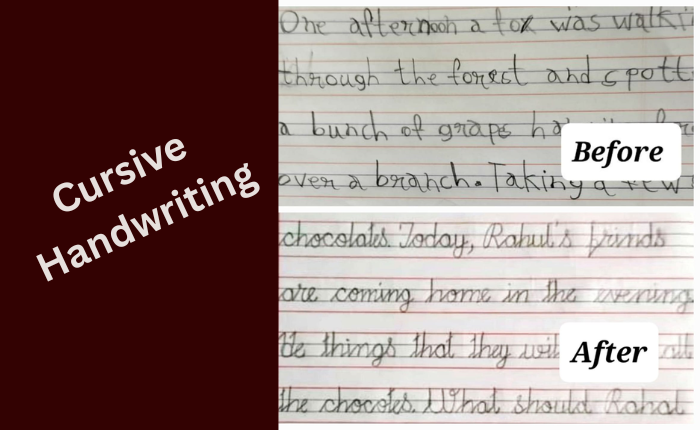 Cursive
Handwriting
One afternoon a fox was walki
through the forest and spott
a bunch of graps
Before
over a branch. Taking a few
chocolates. Today, Rahul's frinds
are coming home in the evening.
He things that they
After
the chocotes. What should Rahat